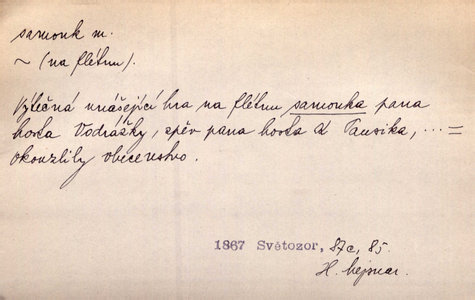 samouk m.
~ (na flétnu).
Výtečná unášející hra na flétnu samouka pana
hosta Vodrážky, zpěv pana hosta Tausika, ... =
okouzlily obecenstvo.
1867 Světozor, 87c, 85.
H. Mejsnar.